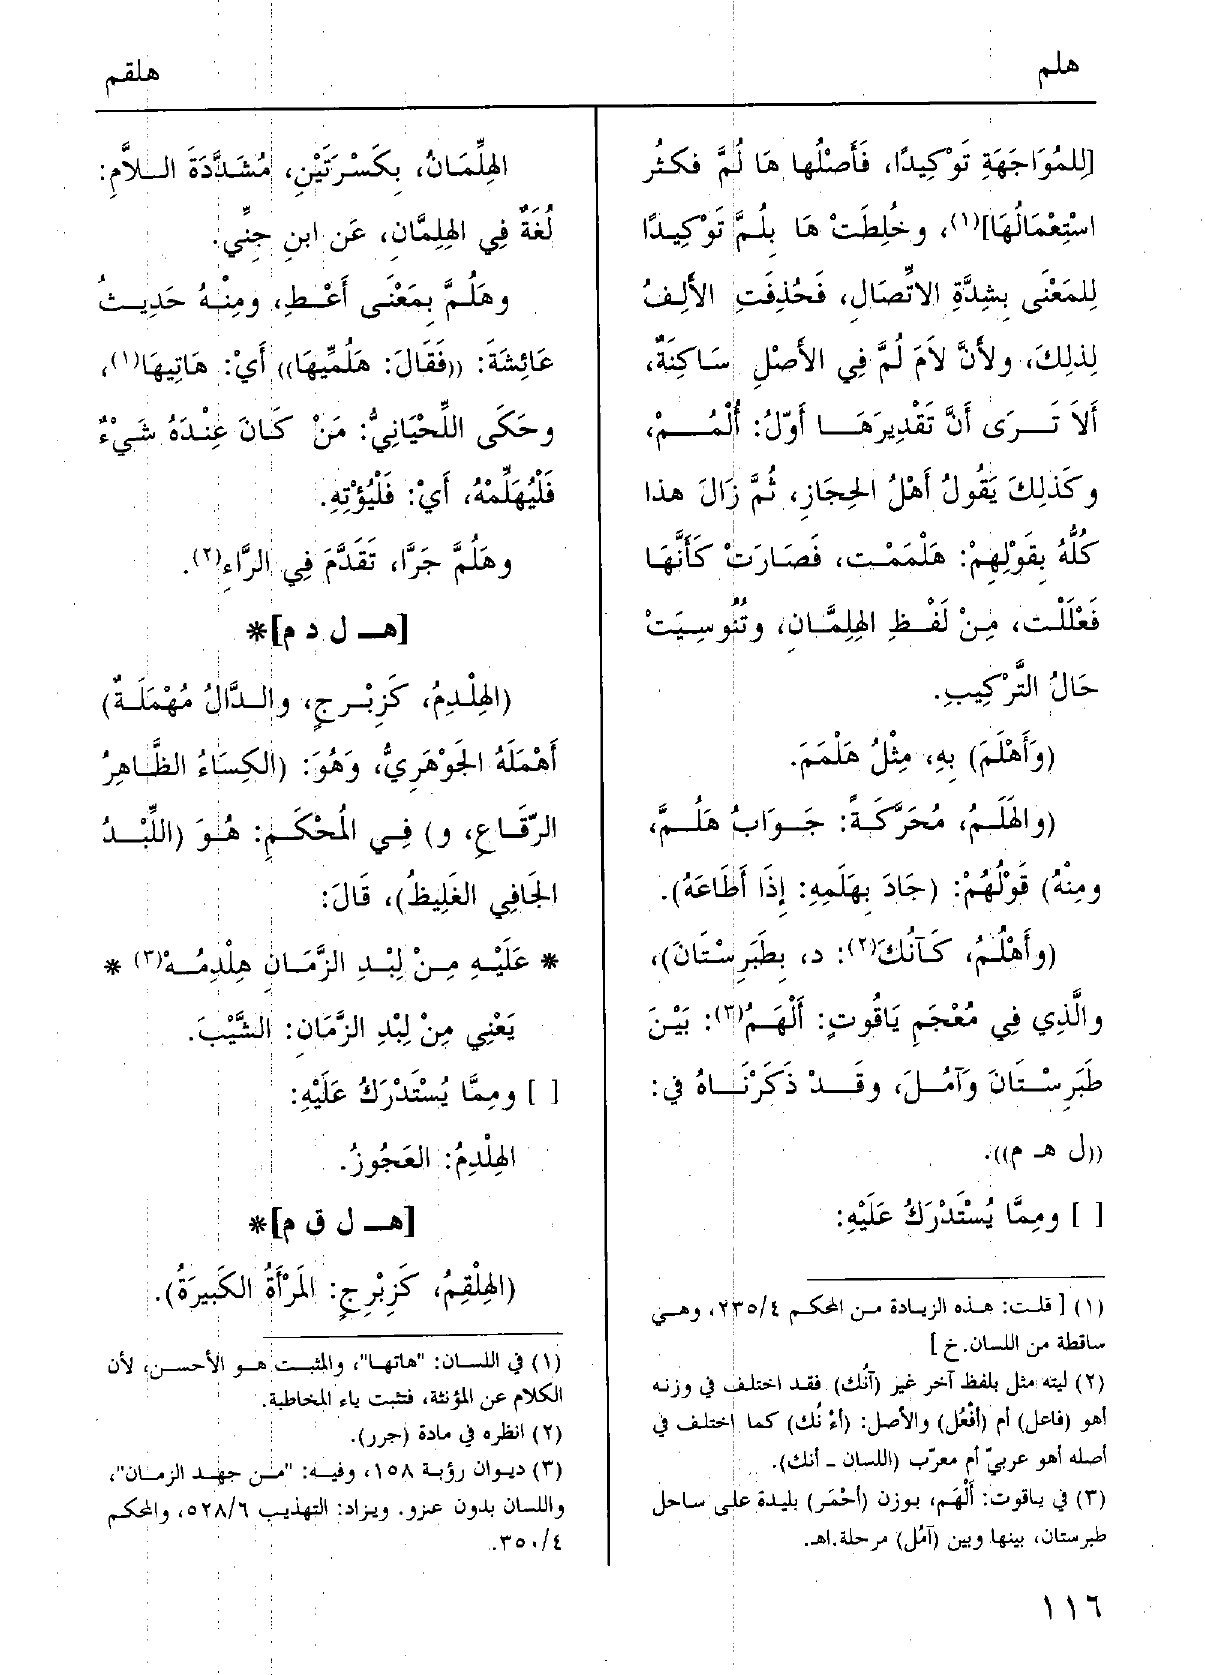 هلم
هلقم
[لِلمُوَاجَهَةِ تَوْكِيدًا، فَأَصْلُها هَا لُمَّ فكَثُر
اسْتِعْمَالُهَا](١)، وخُلِطَتْ هَا بِلُمَّ تَوْكِيدًا
لِلمَعْنَى بِشِدَّةِ الاتِّصَالِ، فَحُذِفَتِ الأَلِفُ
لِذلِكَ، ولأَنَّ لاَمَ لُمَّ فِي الأَصْلِ سَاكِنَةٌ،
أَلاَ تَرَى أَنَّ تَقْدِيرَهَا أَوّلُ: أُلْمُمْ،
وكَذلِكَ يَقُولُ أَهْلُ الحِجَازِ، ثُمَّ زَالَ هذا
كُلُّهُ بِقَوْلِهِمْ: هَلْمَمْت، فَصَارَتْ كَأَنَّهَا
فَعْلَلْت، مِنْ لَفْظِ الهِلِمَّانِ، وتُنُوسِيَتْ
حَالُ التَّرْكِيبِ.
(وَأَهْلَمَ) بِهِ، مِثْلُ هَلْمَمَ.
(والهَلَمُ، مُحَرَّكَةً: جَوَابُ هَلُمَّ،
ومِنْهُ) قَوْلُهُمْ: (جَادَ بِهَلَمِهِ: إِذَا أَطَاعَهُ).
(وأَهْلُمُ، كَآنُكَ(٢): د، بِطَبَرِسْتَانَ)،
والَّذِي فِي مُعْجَمِ يَاقُوتٍ: أَلْهَمُ(٣): بَيْنَ
طَبَرِسْتَانَ وَآمُلَ، وقَدْ ذَكَرْنَاهُ في:
((ل هـ م)).
[ ] ومِمَّا يُسْتَدْرَكُ عَلَيْهِ:
(١) [ قلت: هذه الزيادة من المحكم ٢٣٥/٤، وهي
ساقطة من اللسان.خ ]
(٢) ليته مثل بلفظ آخر غير (آنُك) فقد اختلف في وزنه
أهو (فاعل) أم (أفْعُل) والأصل: (أءْنُك) كما اختلف في
أصله أهو عربيّ أم معرّب (اللسان ـ أنك).
(٣) في ياقوت: أَلْهَم، بوزن (أحْمَر) بليدة على ساحل
طبرستان، بينها وبين (آمُل) مرحلة.اهـ.
الهِلِّمَانُ، بِكَسْرَتَيْنِ، مُشَدَّدَةَ اللاَّمِ:
لُغَةٌ فِي الهِلِمَّانِ، عَن ابنِ جِنِّي.
وهَلُمَّ بِمَعْنَى أَعْطِ، ومِنْهُ حَدِيثُ
عَائِشَةَ: ((فَقَالَ: هَلُمِّيهَا)) أَيْ: هَاتِيهَا(١)،
وحَكَى اللِّحْيَانِيُّ: مَنْ كَانَ عِنْدَهُ شَيْءٌ
فَلْيُهَلِّمْهُ، أَيْ: فَلْيُؤْتِهِ.
وهَلُمَّ جَرًّا، تَقَدَّمَ فِي الرَّاءِ(٢).
[هـ ل د م]*
(الهِلْدِمُ، كَزِبْرِجٍ، والدَّالُ مُهْمَلَةٌ)
أَهْمَلَهُ الجَوْهَرِيُّ، وَهُوَ: (الكِسَاءُ الظَّاهِرُ
الرِّقَاعِ، و) فِي المُحْكَمِ: هُوَ (اللِّبْدُ
الجَافِي الغَلِيظُ)، قَالَ:
* عَلَيْهِ مِنْ لِبْدِ الزَّمَانِ هِلْدِمُهْ(٣) *
يَعْنِي مِنْ لِبْدِ الزَّمَانِ: الشَّيْبَ.
[ ] ومِمَّا يُسْتَدْرَكُ عَلَيْهِ:
الهِلْدِمُ: العَجُوزُ.
[هـ ل ق م]*
(الهِلْقِمُ، كَزِبْرِجٍ: المَرْأَةُ الكَبِيرَةُ).
(١) في اللسان: "هاتها"، والمثبت هو الأحسن، لأن
الكلام عن المؤنثة، فتثبت ياء المخاطبة.
(٢) انظره في مادة (جرر).
(٣) ديوان رؤبة ١٥٨، وفيه: "من جهد الزمان"،
واللسان بدون عزو. ويزاد: التهذيب ٥٢٨/٦، والمحكم
٣٥٠/٤.
١١٦